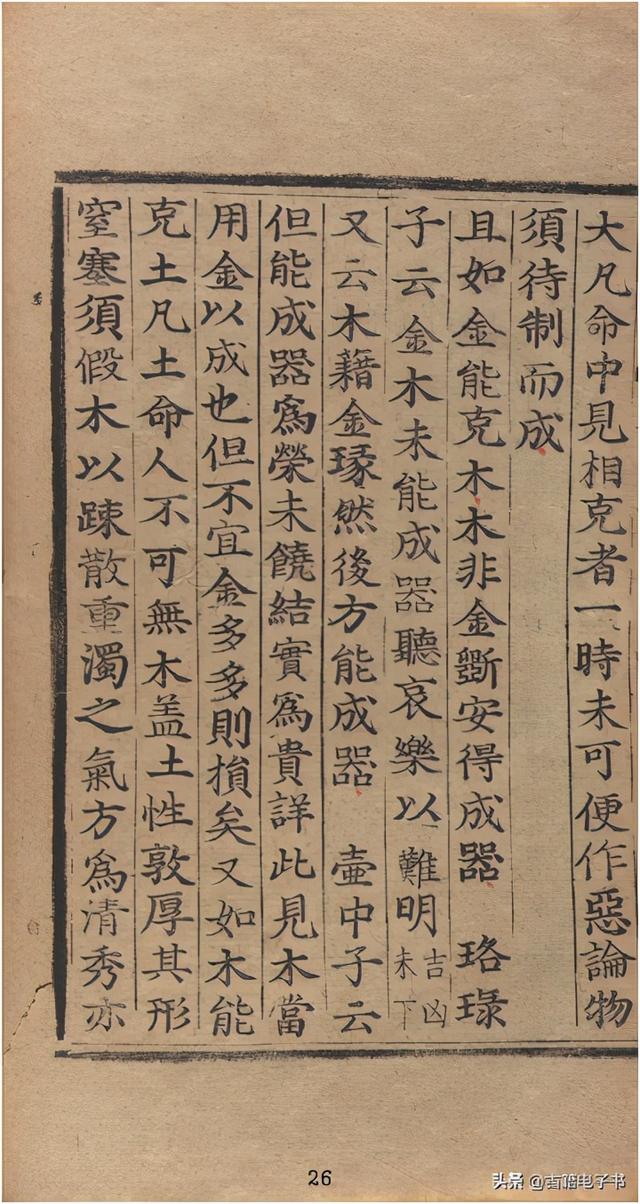 大凡命中見相克者一時未可便作惡論物
須待制而成
且如金能克木木非金斵安得成器 珞琭
子云金木未能成器聽哀樂以難明吉凶未下
又云木藉金琢然後方能成器 壷中子云
但能成器為榮未饒結實為貴詳此見木當
用金以成也但不宜金多多則損矣又如木能
克土凡土命人不可無木盖土性敦厚其形
窒塞須假木以踈散重濁之氣方為清秀亦
26
头条@古睹电子书